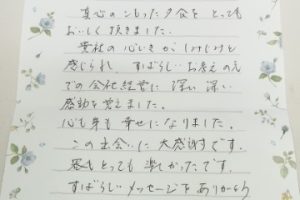 真心のこもった夕食をとっても
おいしく頂きました。
貴社の心いきがしみじみと
感じられ、すばらしいお考えのもと
での会社経営に深い深い
感動を覚えました。
心も身も幸せになりました。
この出会いに大感謝です。
とっても楽しかったです。
すばらしいメッセージ下ありがとう